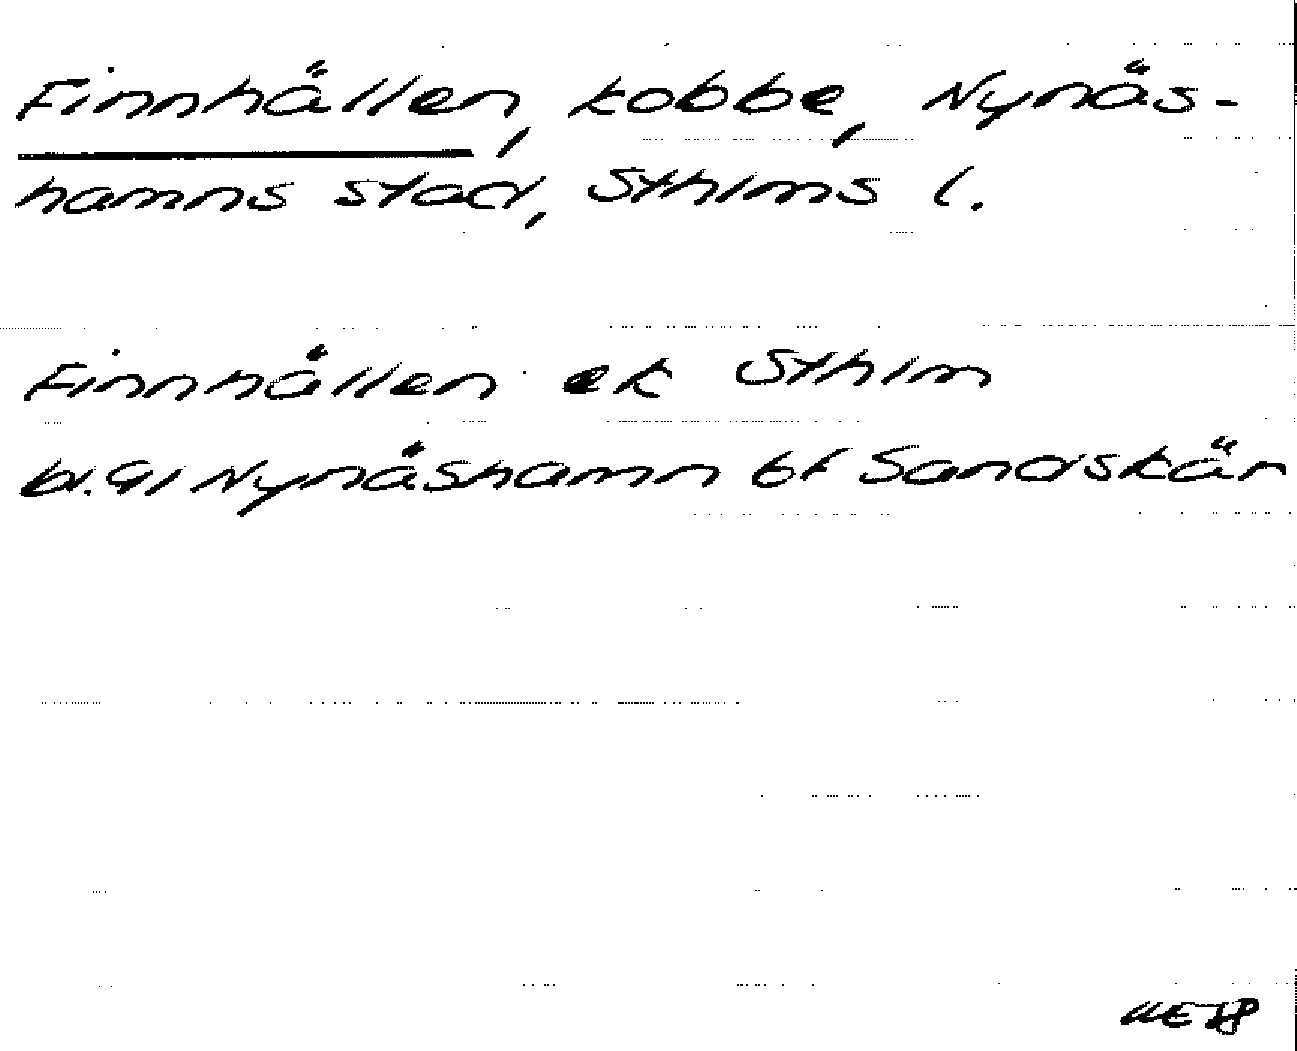 Finnhällen, kobbe, Nynäs-
hamns stad, Sthlms l.
Finnhällen ek Sthlm
bl. 91 Nynäshamn bf Sandskär